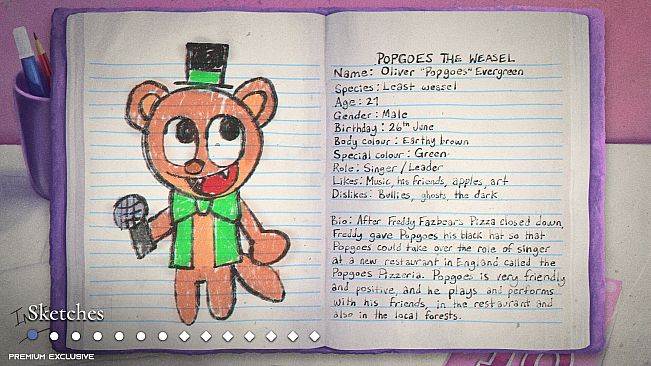 POPGOES THE WEASEL
Name: Oliver "Popgoes" Evergreen
Species: Least weasel
Age: 27
Gender: Male
Birthday: 26th June
Body colour: Earthy brown
Special colour: Green
Role: Singer/Leader
Likes: Music, his friends, apples, art
Dislikes: Bullies, ghosts, the dark
Bio: After Freddy Fazbear's Pizza closed down,
Freddy gave Popgoes his black hat so that
Popgoes could take over the role of singer
at a new restaurant in England called the
Popgoes Pizzeria. Popgoes is very friendly
and positive, and he plays and performs
with his friends, in the restaurant and
also in the local forests.
Sketches
PREMIUM EXCLUSIVE